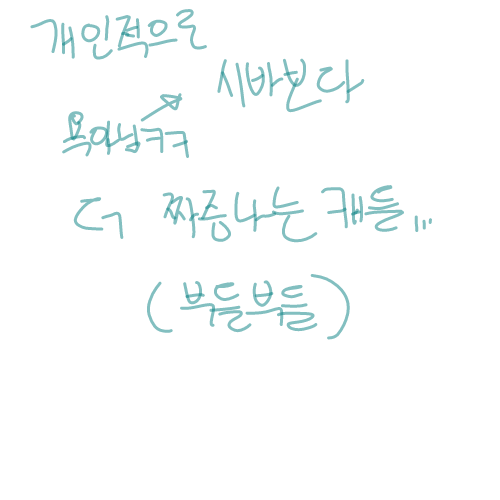 개인적으로
시바보다
욕아님ㅋㅋ
더 짜증나는 캐들...
(부들부들)